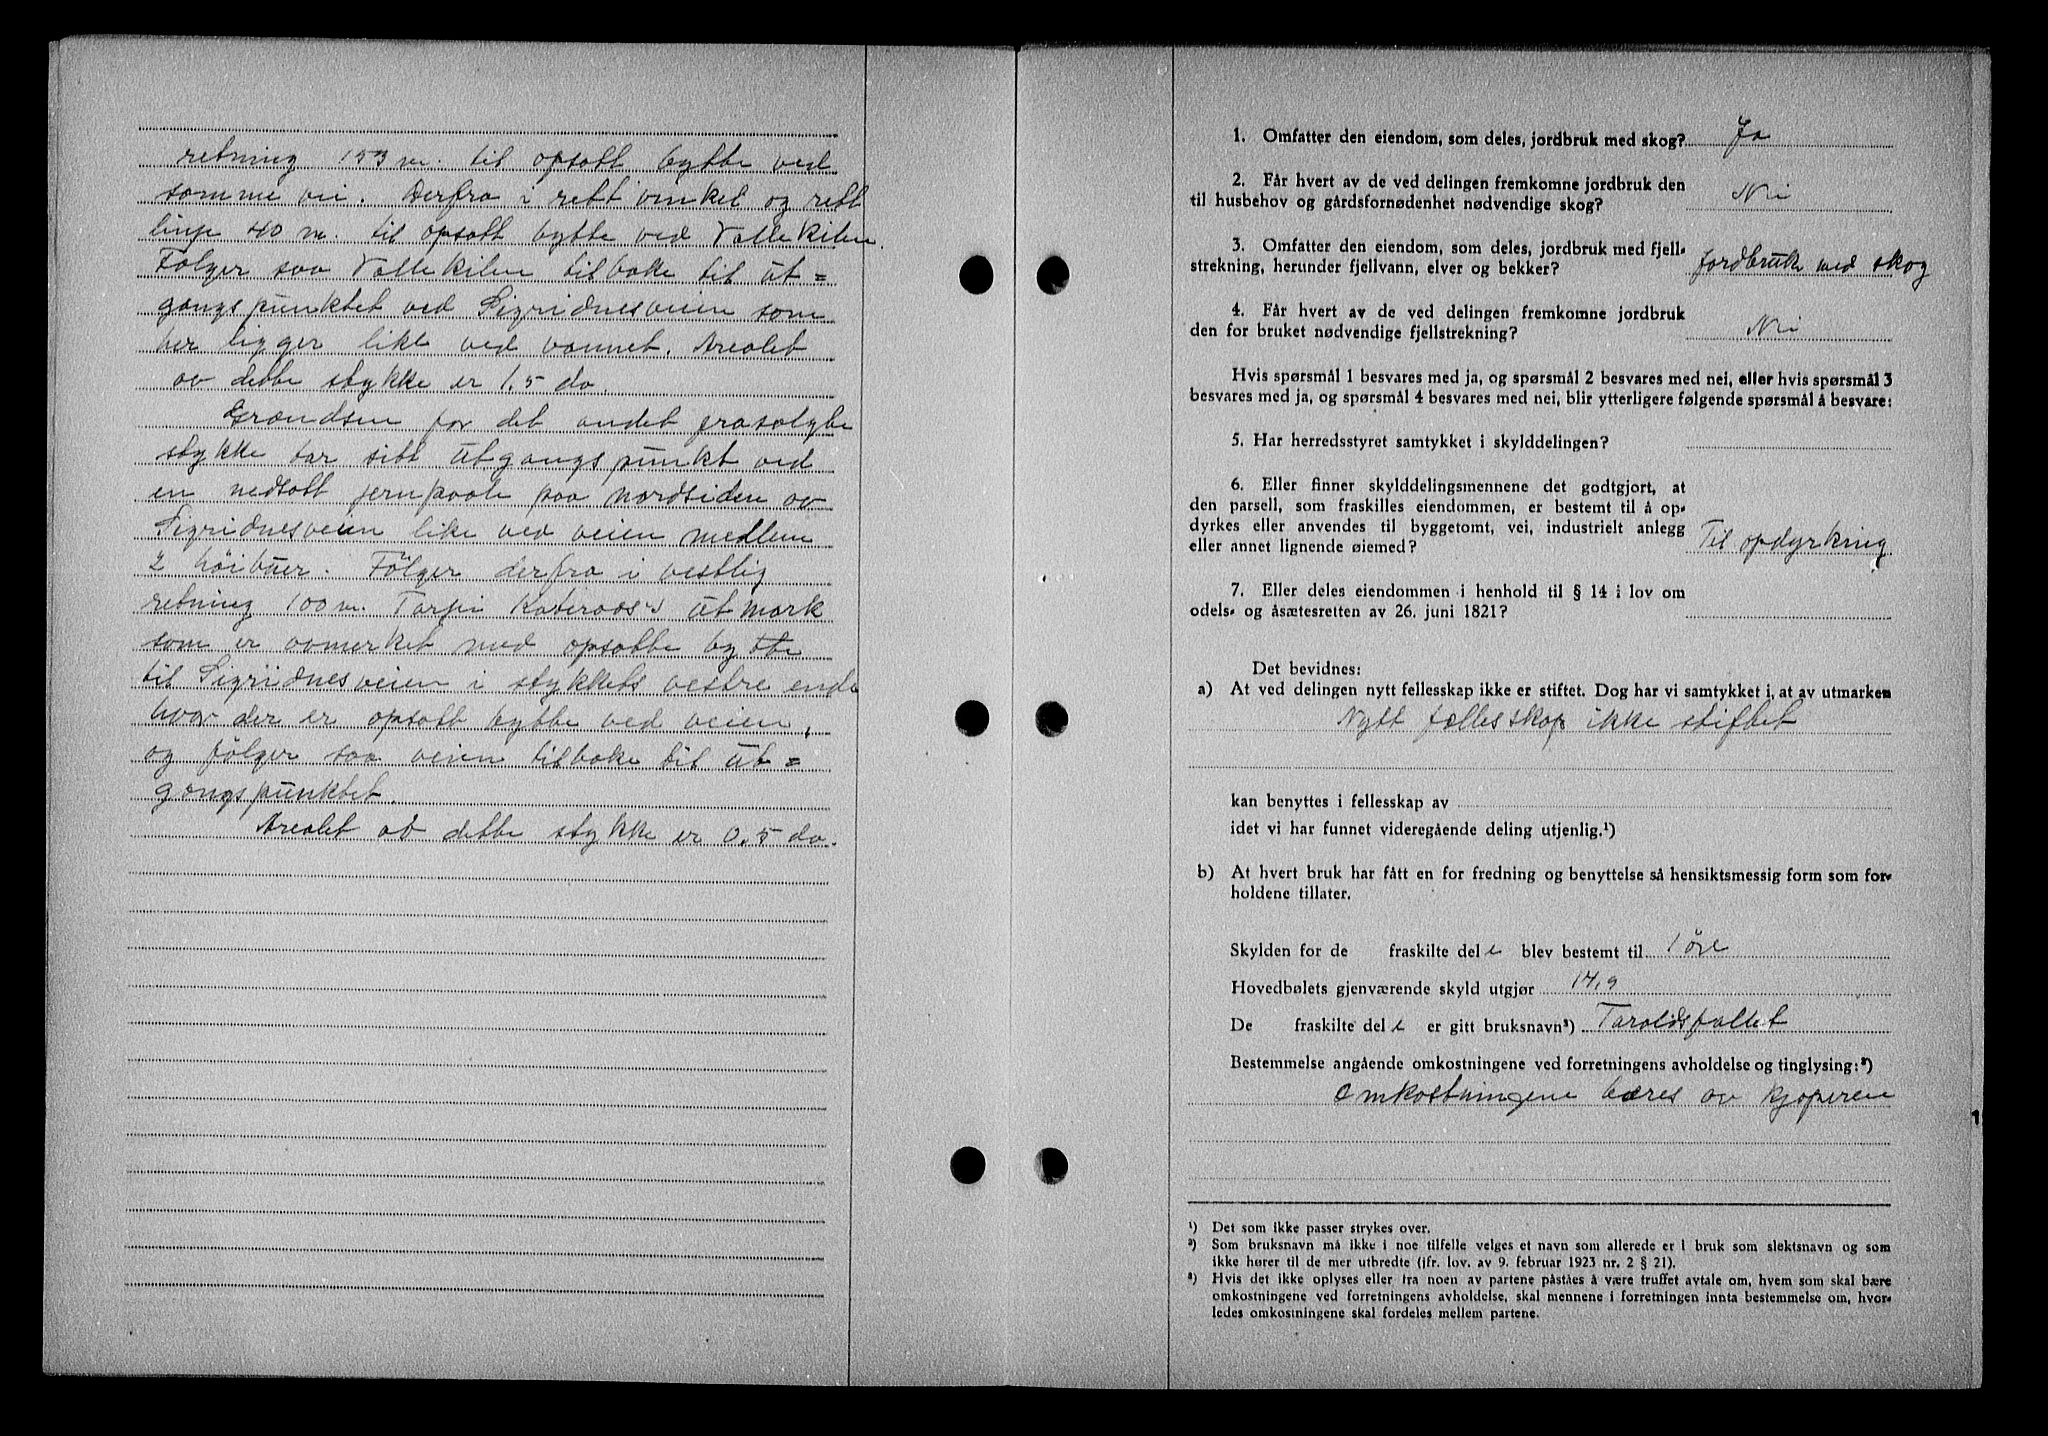 retning 153 m. til opsatt bytte ved
samme vei. Derfra i rett vinkel og rett
linje 40 m. til opsatt bytte ved Vallekilen.
Følger saa Vallekilen tilbake til ut=
gangspunktet ved Sigridnesveien som
her ligger like ved vannet. Arealet
av dette stykke er 1,5 da.
Grændsen for det andet frasolgte
stykke tar sitt utgangspunkt ved
en nedsatt jernpaale paa nordsiden av
Sigridnesveien like ved veien mellem
2 høibuer. Følger derfra i vestlig
retning 100 m. Tarjei Kateraas's utmark
som er avmerket med opsatte bytte
til Sigridnesveien i stykkets vestre ende
hvor der er opsatt bytte ved veien,
og følger saa veien tilbake til ut=
gangspunktet.
Arealet at dette stykke er 0,5 da.
1. Omfatter den eiendom, som deles, jordbruk med skog? Ja
2. Får hvert av de ved delingen fremkomne jordbruk den
til husbehov og gårdsfornødenhet nødvendige skog? Nei
3. Omfatter den eiendom, som deles, jordbruk med fjell-
strekning, herunder fjellvann, elver og bekker? Jordbruk med skog
4. Får hvert av de ved delingen fremkomne jordbruk
den for bruket nødvendige fjellstrekning? Nei
Hvis spørsmål 1 besvares med ja, og spørsmål 2 besvares med nei, eller hvis spørsmål 3
besvares med ja, og spørsmål 4 besvares med nei, blir ytterligere følgende spørsmål å besvare:
5. Har herredsstyret samtykket i skylddelingen?
6. Eller finner skylddelingsmennene det godtgjort, at
den parsell, som fraskilles eiendommen, er bestemt til å op-
dyrkes eller anvendes til byggetomt, vei, industrielt anlegg
eller annet lignende øiemed? Til opdyrking
7. Eller deles eiendommen i henhold til § 14 i lov om
odels- og åsætesretten av 26. juni 1821?
Det bevidnes:
a) At ved delingen nytt fellesskap ikke er stiftet. Dog har vi samtykket i, at av utmarken
Nytt fællesskap ikke stiftet
kan benyttes i fellesskap av
idet vi har funnet videregående deling utjenlig.¹)
b) At hvert bruk har fått en for fredning og benyttelse så hensiktsmessig form som for-
holdene tillater.
Skylden for de fraskilte del e blev bestemt til 1 øre
Hovedbølets gjenværende skyld utgjør 14,9
De fraskilte del e er gitt bruksnavn²) Taraldsfallet
Bestemmelse angående omkostningene ved forretningens avholdelse og tinglysing:³)
Omkostningene bæres av kjøperen
1
¹) Det som ikke passer strykes over.
²) Som bruksnavn må ikke i noe tilfelle velges et navn som allerede er i bruk som slektsnavn og som
ikke hører til de mer utbredte (jfr. lov. av 9. februar 1923 nr. 2 § 21).
³) Hvis det ikke oplyses eller fra noen av partene påståes å være truffet avtale om, hvem som skal bære
omkostningene ved forretningens avholdelse, skal mennene i forretningen innta bestemmelse om, hvor-
ledes omkostningene skal fordeles mellem partene.